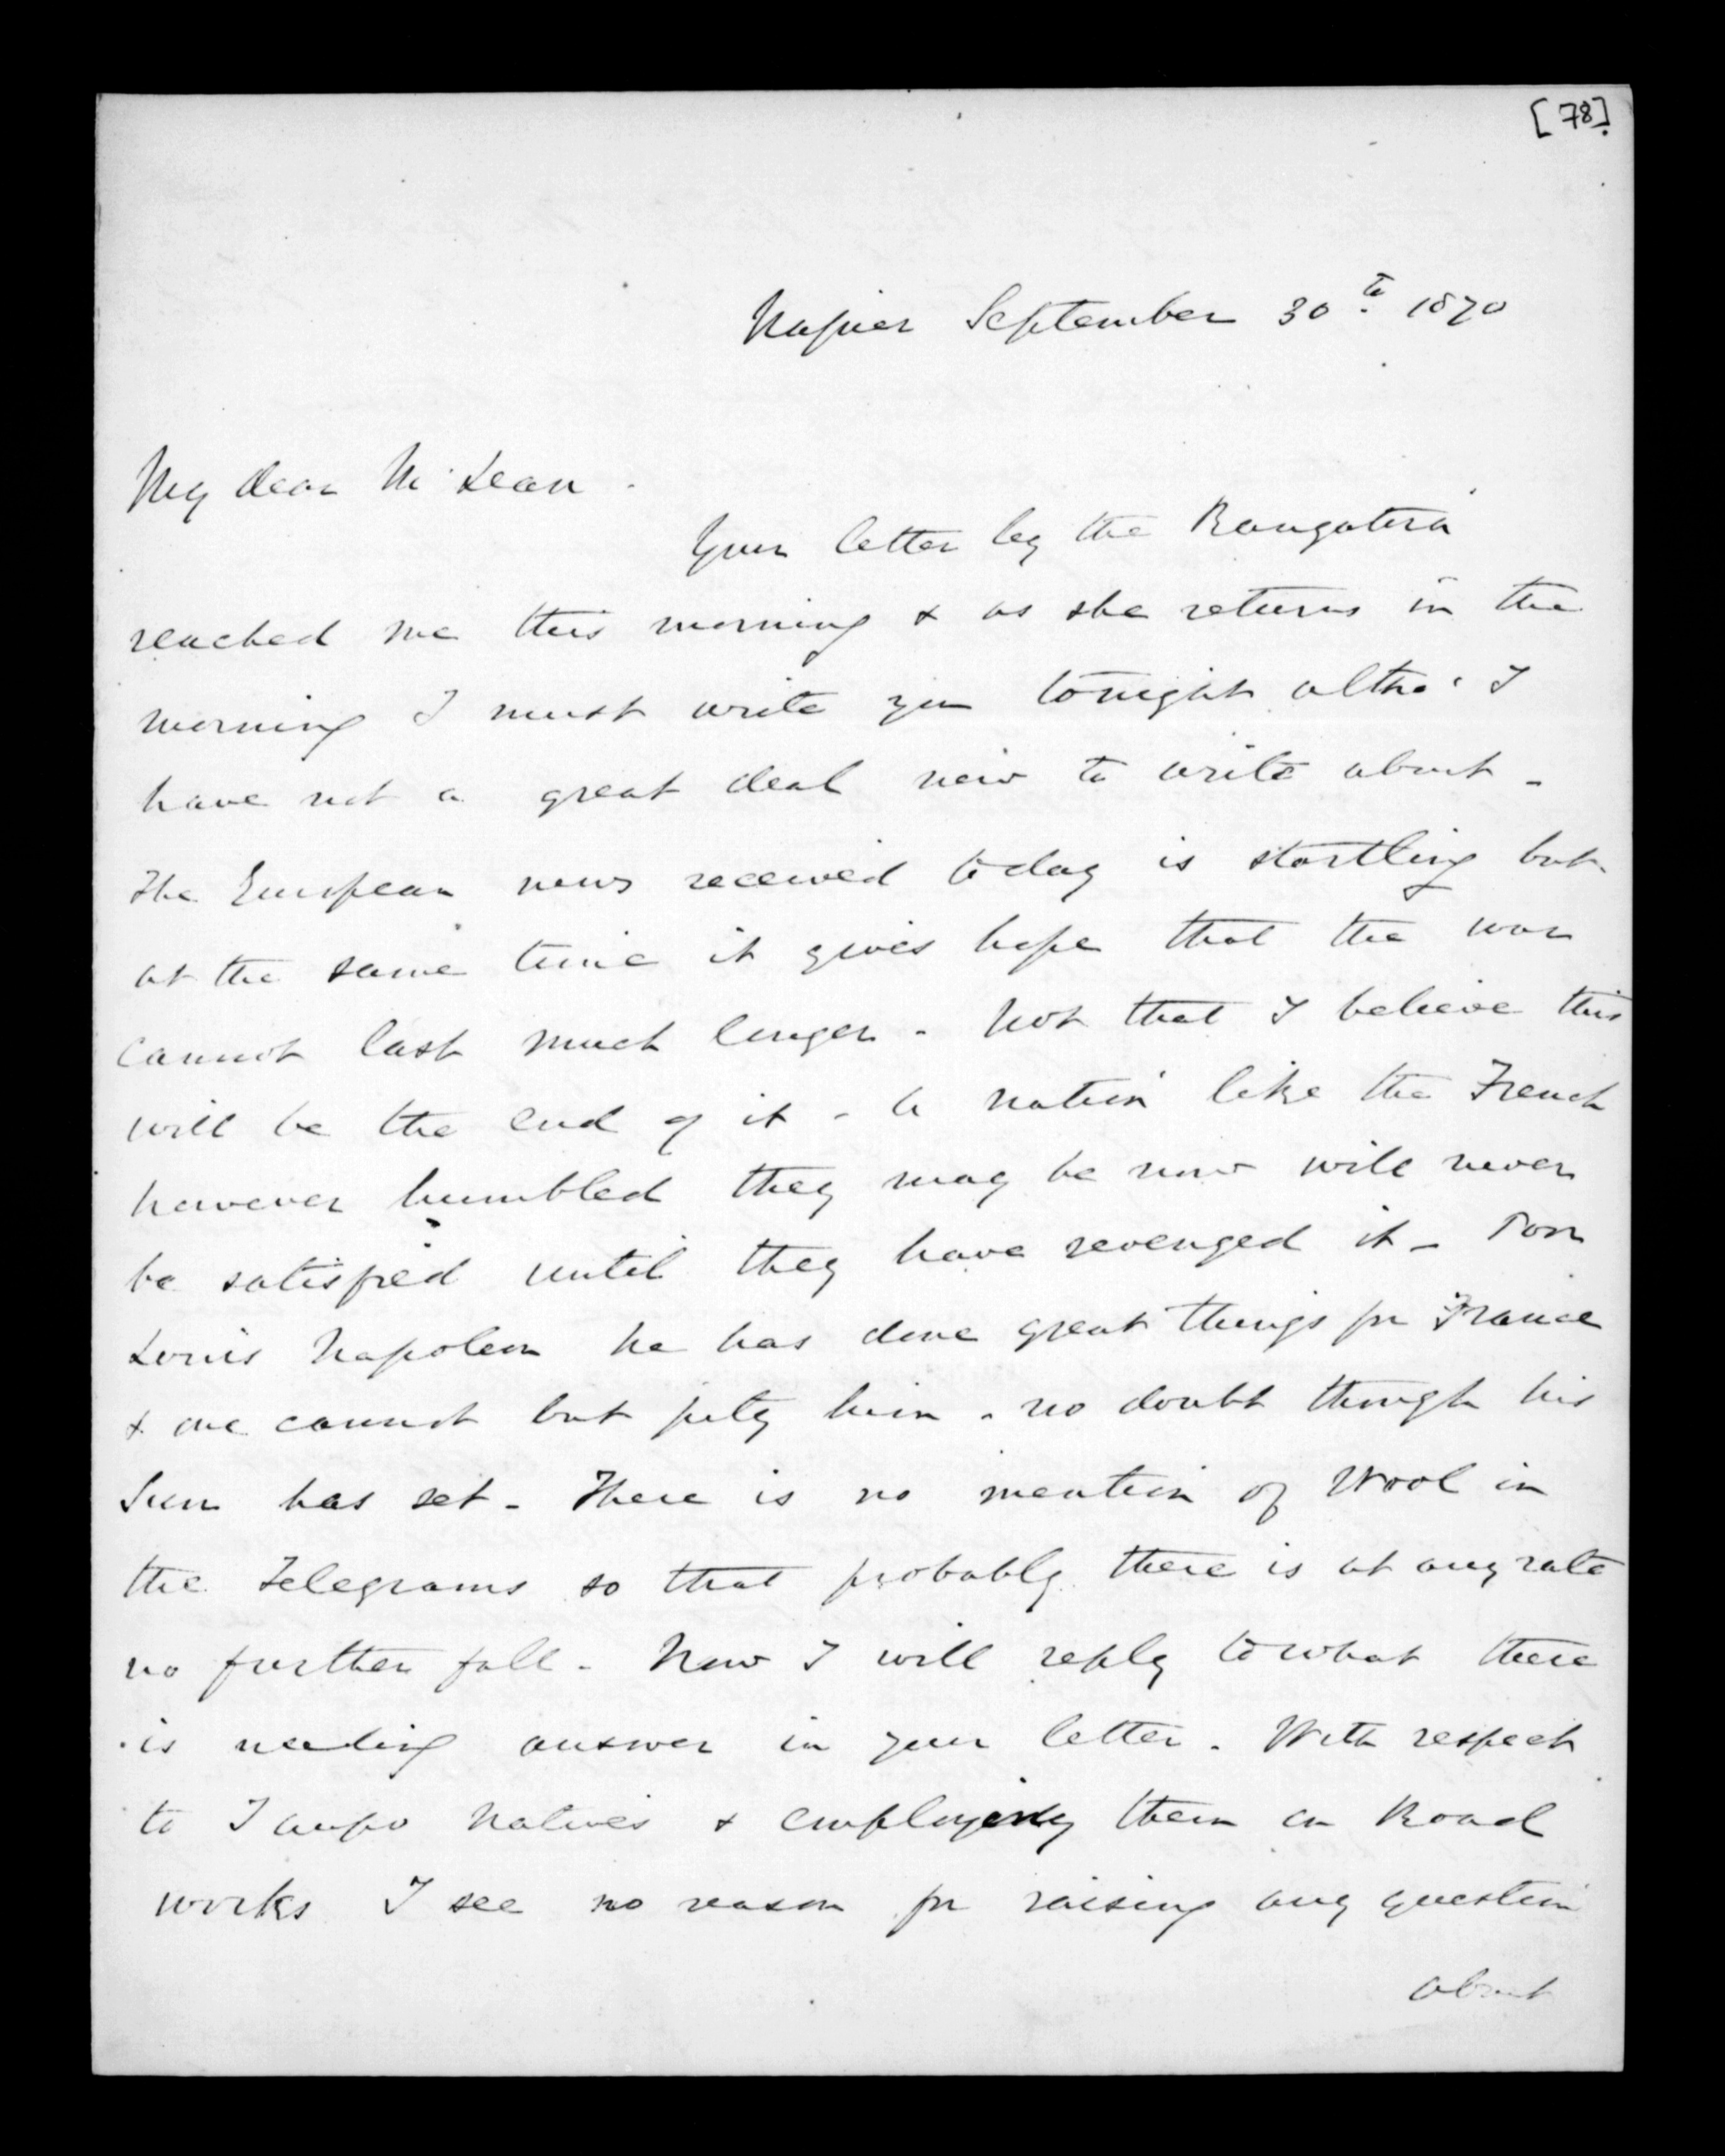 [78]
Napier September 30th. 1870
My dear McLean.
Your letter by the Rangatira
reached me this morning & as she returns in the
morning I must write you tonight altho' I
have not a great deal new to write about -
The European news received today is startling but
at the same time it gives hope that the war
cannot last much longer - Not that I believe this
will be the end of it - A nation like the French
however humbled they may be now will never
be satisfied until they have revenged it - Poor
Louis Napoleon he has done great things for France
& one cannot but pity him - no doubt though his
Sun has set - There is no mention of Wool in
the Telegrams so that probably there is at any rate
no further fall - Now I will reply to what there
is needing answer in your letter. With respect
to Taupo Natives & employing them on Road
works I see no reason for raising any question
about